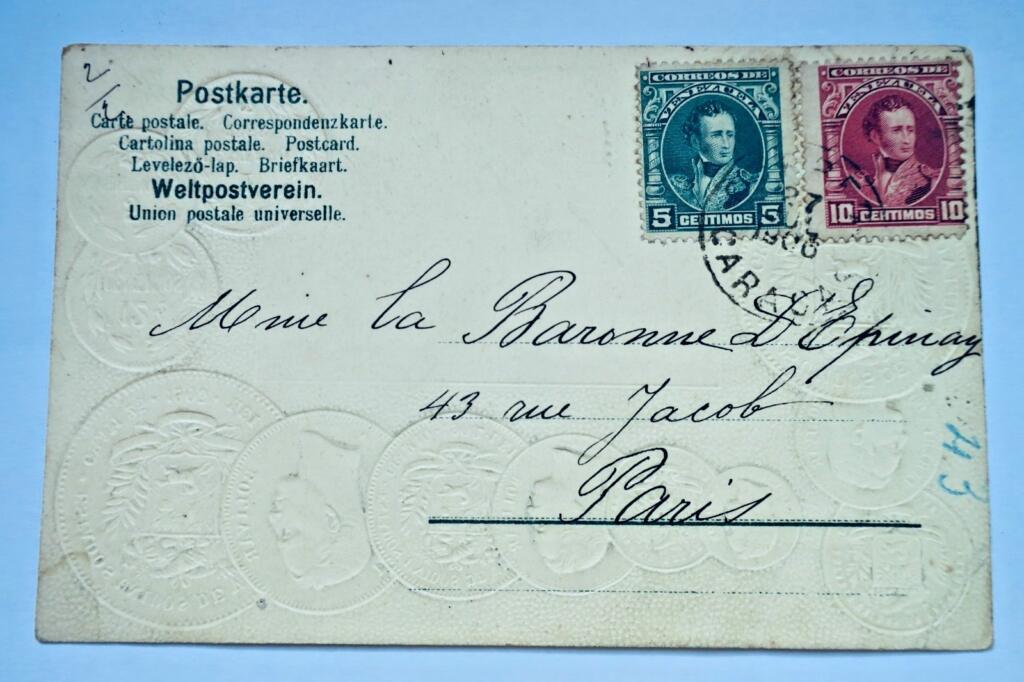 2/1
Postkarte.
Carte postale. Correspondenzkarte.
Cartolina postale. Postcard.
Levelező-lap. Briefkaart.
Weltpostverein.
Union postale universelle.
CORREOS DE
VENEZUELA
5 CENTIMOS 5
CORREOS DE
VENEZUELA
10 CENTIMOS 10
1906
CARACAS
Mme la Baronne D'Epinay
43 rue Jacob
Paris
43